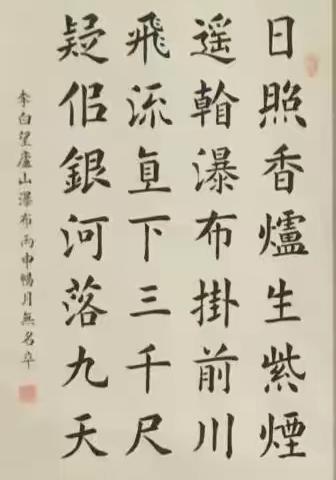 日照香爐生紫煙
遥看瀑布掛前川
飛流直下三千尺
疑佀銀河落九天
李白望廬山瀑布丙申暢月無名卒